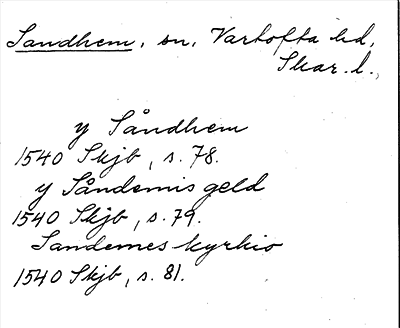 Sandhem, sn, Vartofta hd,
Skar. l.,
y Såndhem
1540 Skjb, s. 78.
y Såndemis geld
1540 Skjb, s. 79.
Sandemes kyrkio
1540 Skjb, s. 81.